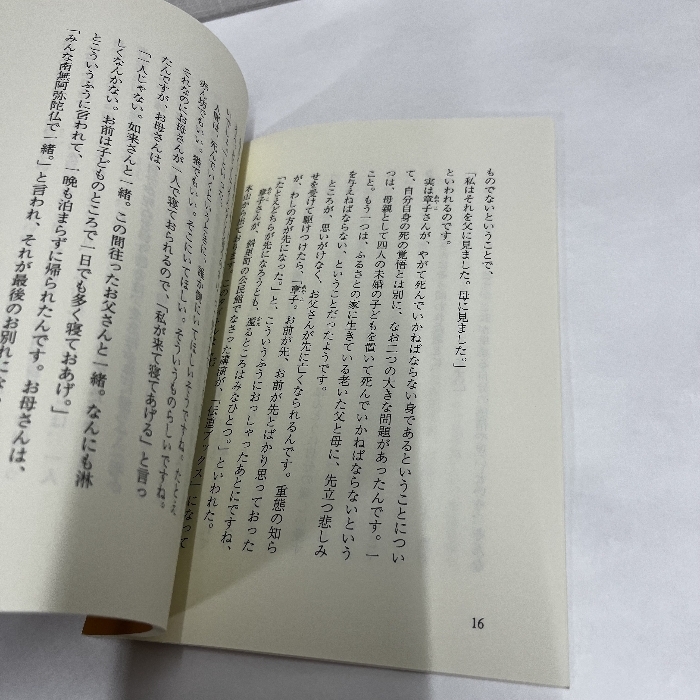 ものでないということで、
「私はそれを父に見ました。母に見ました。」
といわれるのです。
実は章子さんが、やがて死んでいかねばならない身であるということについ
て、自分自身の死の覚悟とは別に、なお二つの大きな問題があったんです。一
つは、母親として四人の未婚の子どもを置いて死んでいかねばならないという
こと。もう一つは、ふるさとの家に生きている老いた父と母に、先立つ悲しみ
を与えねばならない、ということだったようです。
ところが、思いがけなく、お父さんが先に亡くなられるんです。重態の知ら
せを受けて駆けつけたら、「章子。お前が先、お前が先とばかり思っておった
が、わしの方が先になった。」と、こういうふうにおっしゃったあとにですね、
「たとえどちらが先になろうとも、還るところはみなひとつ。」といわれた。
章子さんが、
になって
人間は、死んでいく
誰が側にいてほしいそうですね。たとえ
赤ん坊でもいい。猫でもいい。そこにいてほしい。そういうものらしいですね。
それなのにお母さんが一人で寝ておられるので、「私が来て寝てあげる」と言っ
たんですが、お母さんは、
「一人じゃない。如来さんと一緒。この間往ったお父さんと一緒。なんにも淋
しくなんかない。お前は子どものところで一日でも多く寝ておあげ。」
とこういうふうに言われて、一晩も泊まらずに帰られたんです。お母さんは、
「みんな南無阿弥陀仏で一緒。」と言われ、それが最後のお別れに
16